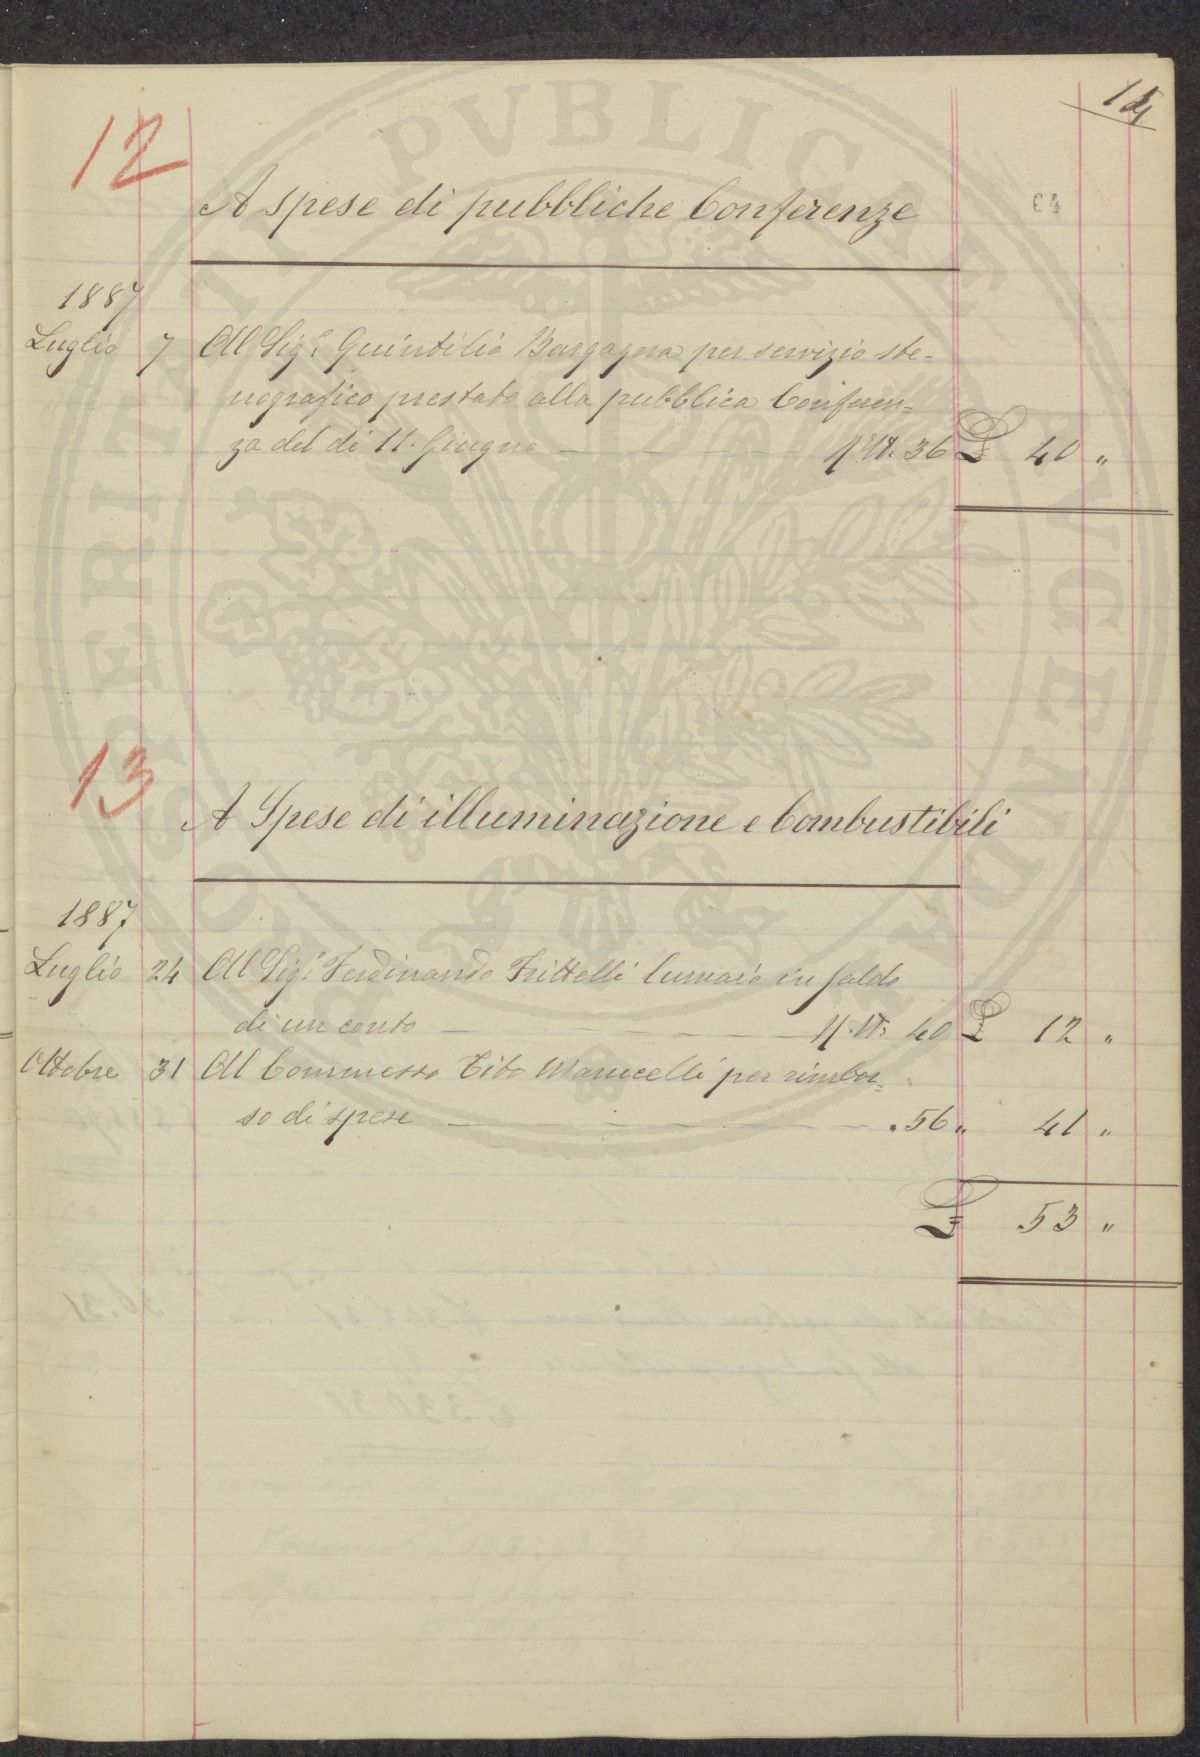 12
A spese di pubbliche Conferenze
64
1887
Luglio 7 Al Sig.r Quintilio Bargagna per servizio ste-
nografico prestato alla pubblica Conferen=
za del dì 11. Giugno — N. 36 £ 40 "
13
A Spese di illuminazione e Combustibili
1887
Luglio 24 Al Sig.r Ferdinando Frittelli lumaio in saldo
di un conto — 40 £ 12 "
Ottobre 31 Al Commesso Tito Marucelli per rimbor=
so di spese — " 56 " 41 "
£ 53 "
PVBLICAE